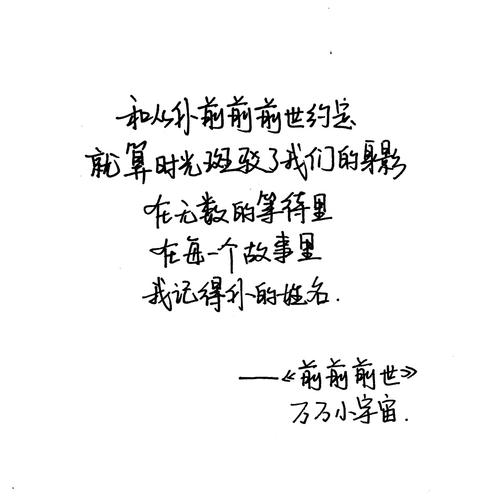 和从你前前前世约定
就算时光斑驳了我们的身影
在无数的等待里
在每一个故事里
我记得你的姓名.
——《前前前世》
万万小宇宙.